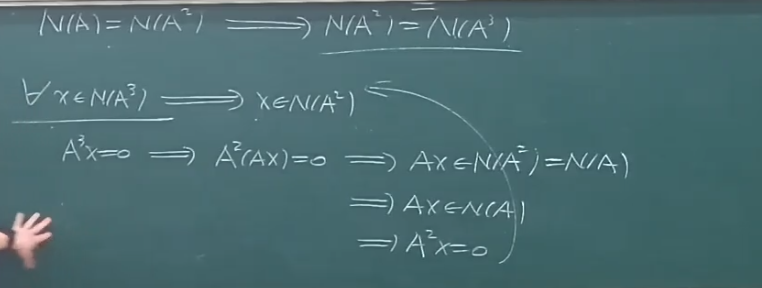 N(A)=N(A²) ⟹ N(A²)=N(A³)
∀x∈N(A³) ⟹ x∈N(A²)
A³x=0 ⟹ A²(Ax)=0 ⟹ Ax∈N(A²)=N(A)
⟹ Ax∈N(A)
⟹ A²x=0